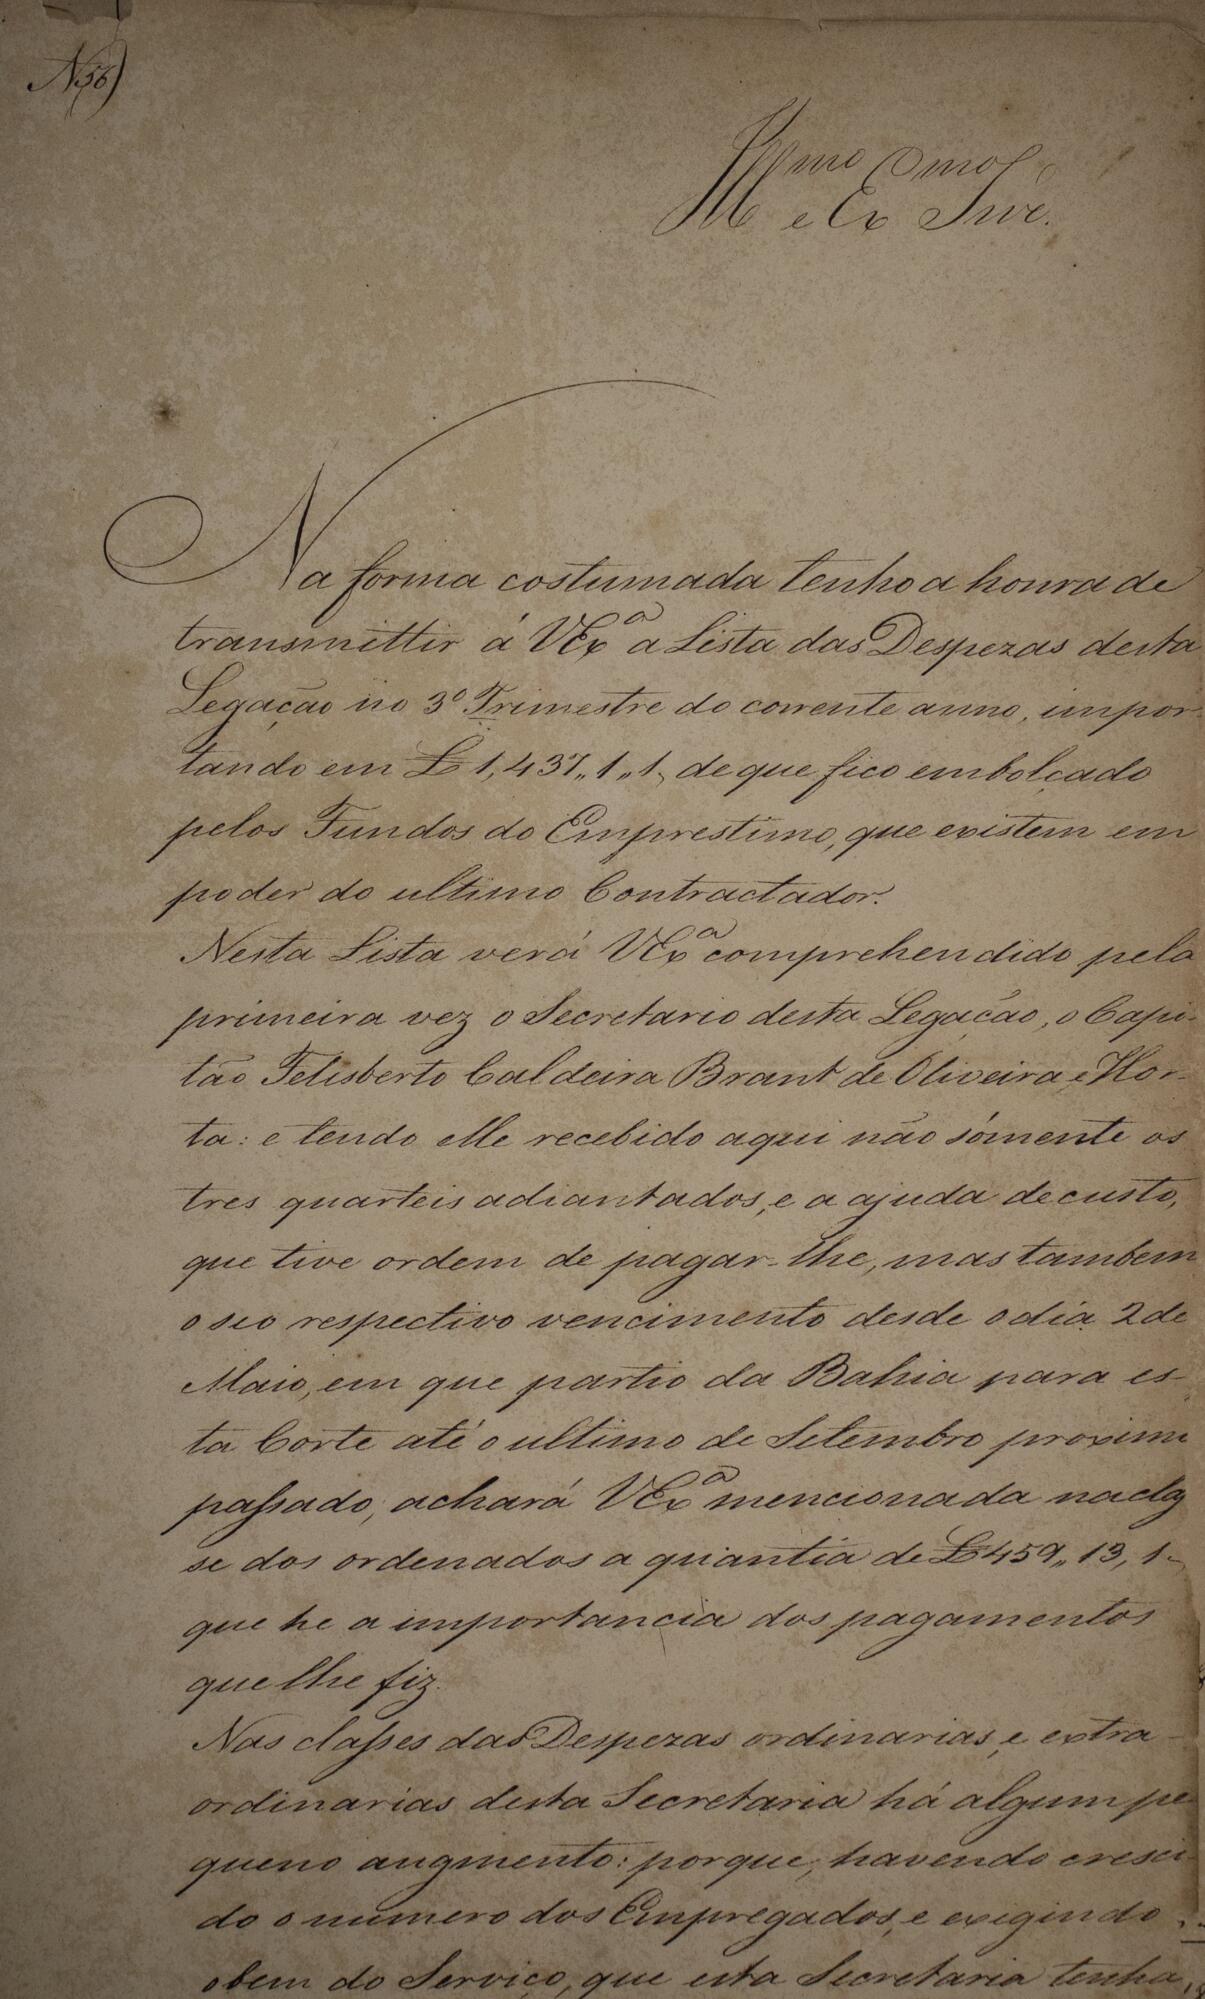 N 56)
Illmo e Exmo Snr.
Na forma costumada tenho a honra de
transmittir á VExa a Lista das Despezas desta
Legação no 3º Trimestre do corrente anno, impor-
tando em £ 1,437,,1,,1, de que fico embolçado
pelos Fundos do Emprestimo, que existem em
poder do ultimo Contractador.
Nesta Lista verá VExa comprehendido pela
primeira vez o Secretario desta Legação, o Capi-
tão Felisberto Caldeira Brant de Oliveira e Hor-
ta: e tendo elle recebido aqui não sómente os
tres quarteis adiantados, e a ajuda de custo,
que tive ordem de pagar-lhe, mas tambem
o seo respectivo vencimento desde o dia 2 de
Maio, em que partio da Bahia para es-
ta Corte até o ultimo de Setembro proximo
passado, achará VExa mencionada na clas
se dos ordenados a quantia de £ 459,,13,,1
que he a importancia dos pagamentos
que lhe fiz.
Nas classes das Despezas ordinarias, e extra-
ordinarias desta Secretaria há algum pe-
queno augmento: porque, havendo cresci-
do o numero dos Empregados, e exigindo
o bem do Serviço, que esta Secretaria tenha,